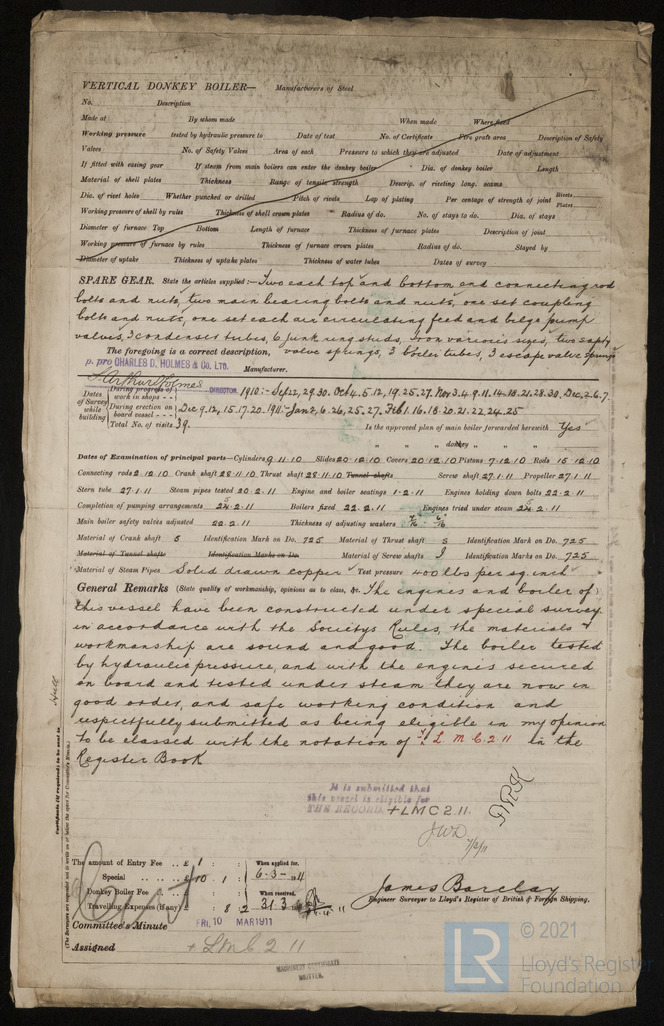 VERTICAL DONKEY BOILER— Manufacturers of Steel
No. Description
Made at By whom made When made Where fixed
Working pressure tested by hydraulic pressure to Date of test No. of Certificate Fire grate area Description of Safety
Valves No. of Safety Valves Area of each Pressure to which they are adjusted Date of adjustment
If fitted with easing gear If steam from main boilers can enter the donkey boiler Dia. of donkey boiler Length
Material of shell plates Thickness Range of tensile strength Descrip. of riveting long. seams
Dia. of rivet holes Whether punched or drilled Pitch of rivets Lap of plating Per centage of strength of joint Rivets Plates
Working pressure of shell by rules Thickness of shell crown plates Radius of do. No. of stays to do. Dia. of stays
Diameter of furnace Top Bottom Length of furnace Thickness of furnace plates Description of joint
Working pressure of furnace by rules Thickness of furnace crown plates Radius of do. Stayed by
Diameter of uptake Thickness of uptake plates Thickness of water tubes Dates of survey
SPARE GEAR. State the articles supplied:— Two each top and bottom end connecting rod
bolts and nuts, two main bearing bolts and nuts, one set coupling
bolts and nuts, one set each air circulating feed and bilge pump
valves, 3 condenser tubes, 6 junk ring studs, Iron various sizes, two safty
valve springs, 3 boiler tubes, 3 escape valve springs
The foregoing is a correct description,
p. pro CHARLES D. HOLMES & Co. LTD. Manufacturer.
Arthur Holmes DIRECTOR
Dates of Survey while building
During progress of work in shops - - 1910:- Sep 22, 29. 30. Oct 4. 5. 12, 19. 25. 27. Nov 3. 4. 9. 11. 14. 18. 21. 28. 30. Dec 2. 6. 7.
During erection on board vessel - - - Dec 9. 12, 15. 17. 20. 1911:- Jan 2, 6. 26, 25. 27. Feb 1. 16. 18. 20. 21. 22. 24. 25
Total No. of visits 39. Is the approved plan of main boiler forwarded herewith Yes
" " " donkey " " "
Dates of Examination of principal parts—Cylinders 9.11.10 Slides 20.12.10 Covers 20.12.10 Pistons 7.12.10 Rods 15.12.10
Connecting rods 2.12.10 Crank shaft 28.11.10 Thrust shaft 28.11.10 Tunnel shafts Screw shaft 27.1.11 Propeller 27.1.11
Stern tube 27.1.11 Steam pipes tested 20.2.11 Engine and boiler seatings 1.2.11 Engines holding down bolts 22.2.11
Completion of pumping arrangements 25.2.11 Boilers fixed 22.2.11 Engines tried under steam 25.2.11
Main boiler safety valves adjusted 22.2.11 Thickness of adjusting washers
Material of Crank shaft S Identification Mark on Do. 725 Material of Thrust shaft S Identification Mark on Do. 725
Material of Tunnel shafts Identification Marks on Do. Material of Screw shafts I Identification Marks on Do. 725
Material of Steam Pipes Solid drawn copper Test pressure 400 lbs per sq. inch
General Remarks (State quality of workmanship, opinions as to class, &c. The engines and boiler of
this vessel have been constructed under special survey
in accordance with the Societys Rules, the materials &
workmanship are sound and good. The boiler tested
by hydraulic pressure, and with the engines secured
on board and tested under steam they are now in
good order, and safe working condition and
respictfully submitted as being eligible in my opinion
to be classed with the notation of L. M. C. 2 11 in the
Register Book
It is submitted that
this vessel is eligible for
THE RECORD. + LMC 2.11.
JWD
7/3/11
Certificate (if required) to be sent to Hull
(The Surveyors are requested not to write on or below the space for Committee's Minute.)
The amount of Entry Fee .. £ 1 : : When applied for.
Special .. .. .. £ 10 . 1 : 6-3-11
Donkey Boiler Fee .. .. £ : : When received.
Travelling Expenses (if any) £ : 8 2 31.3.11
James Barclay
Engineer Surveyor to Lloyd's Register of British & Foreign Shipping.
Committee's Minute FRI, 10 MAR 1911
Assigned + LMC 2 11
MACHINERY CERTIFICATE
WRITTEN.
LR © 2021
Lloyd's Register
Foundation